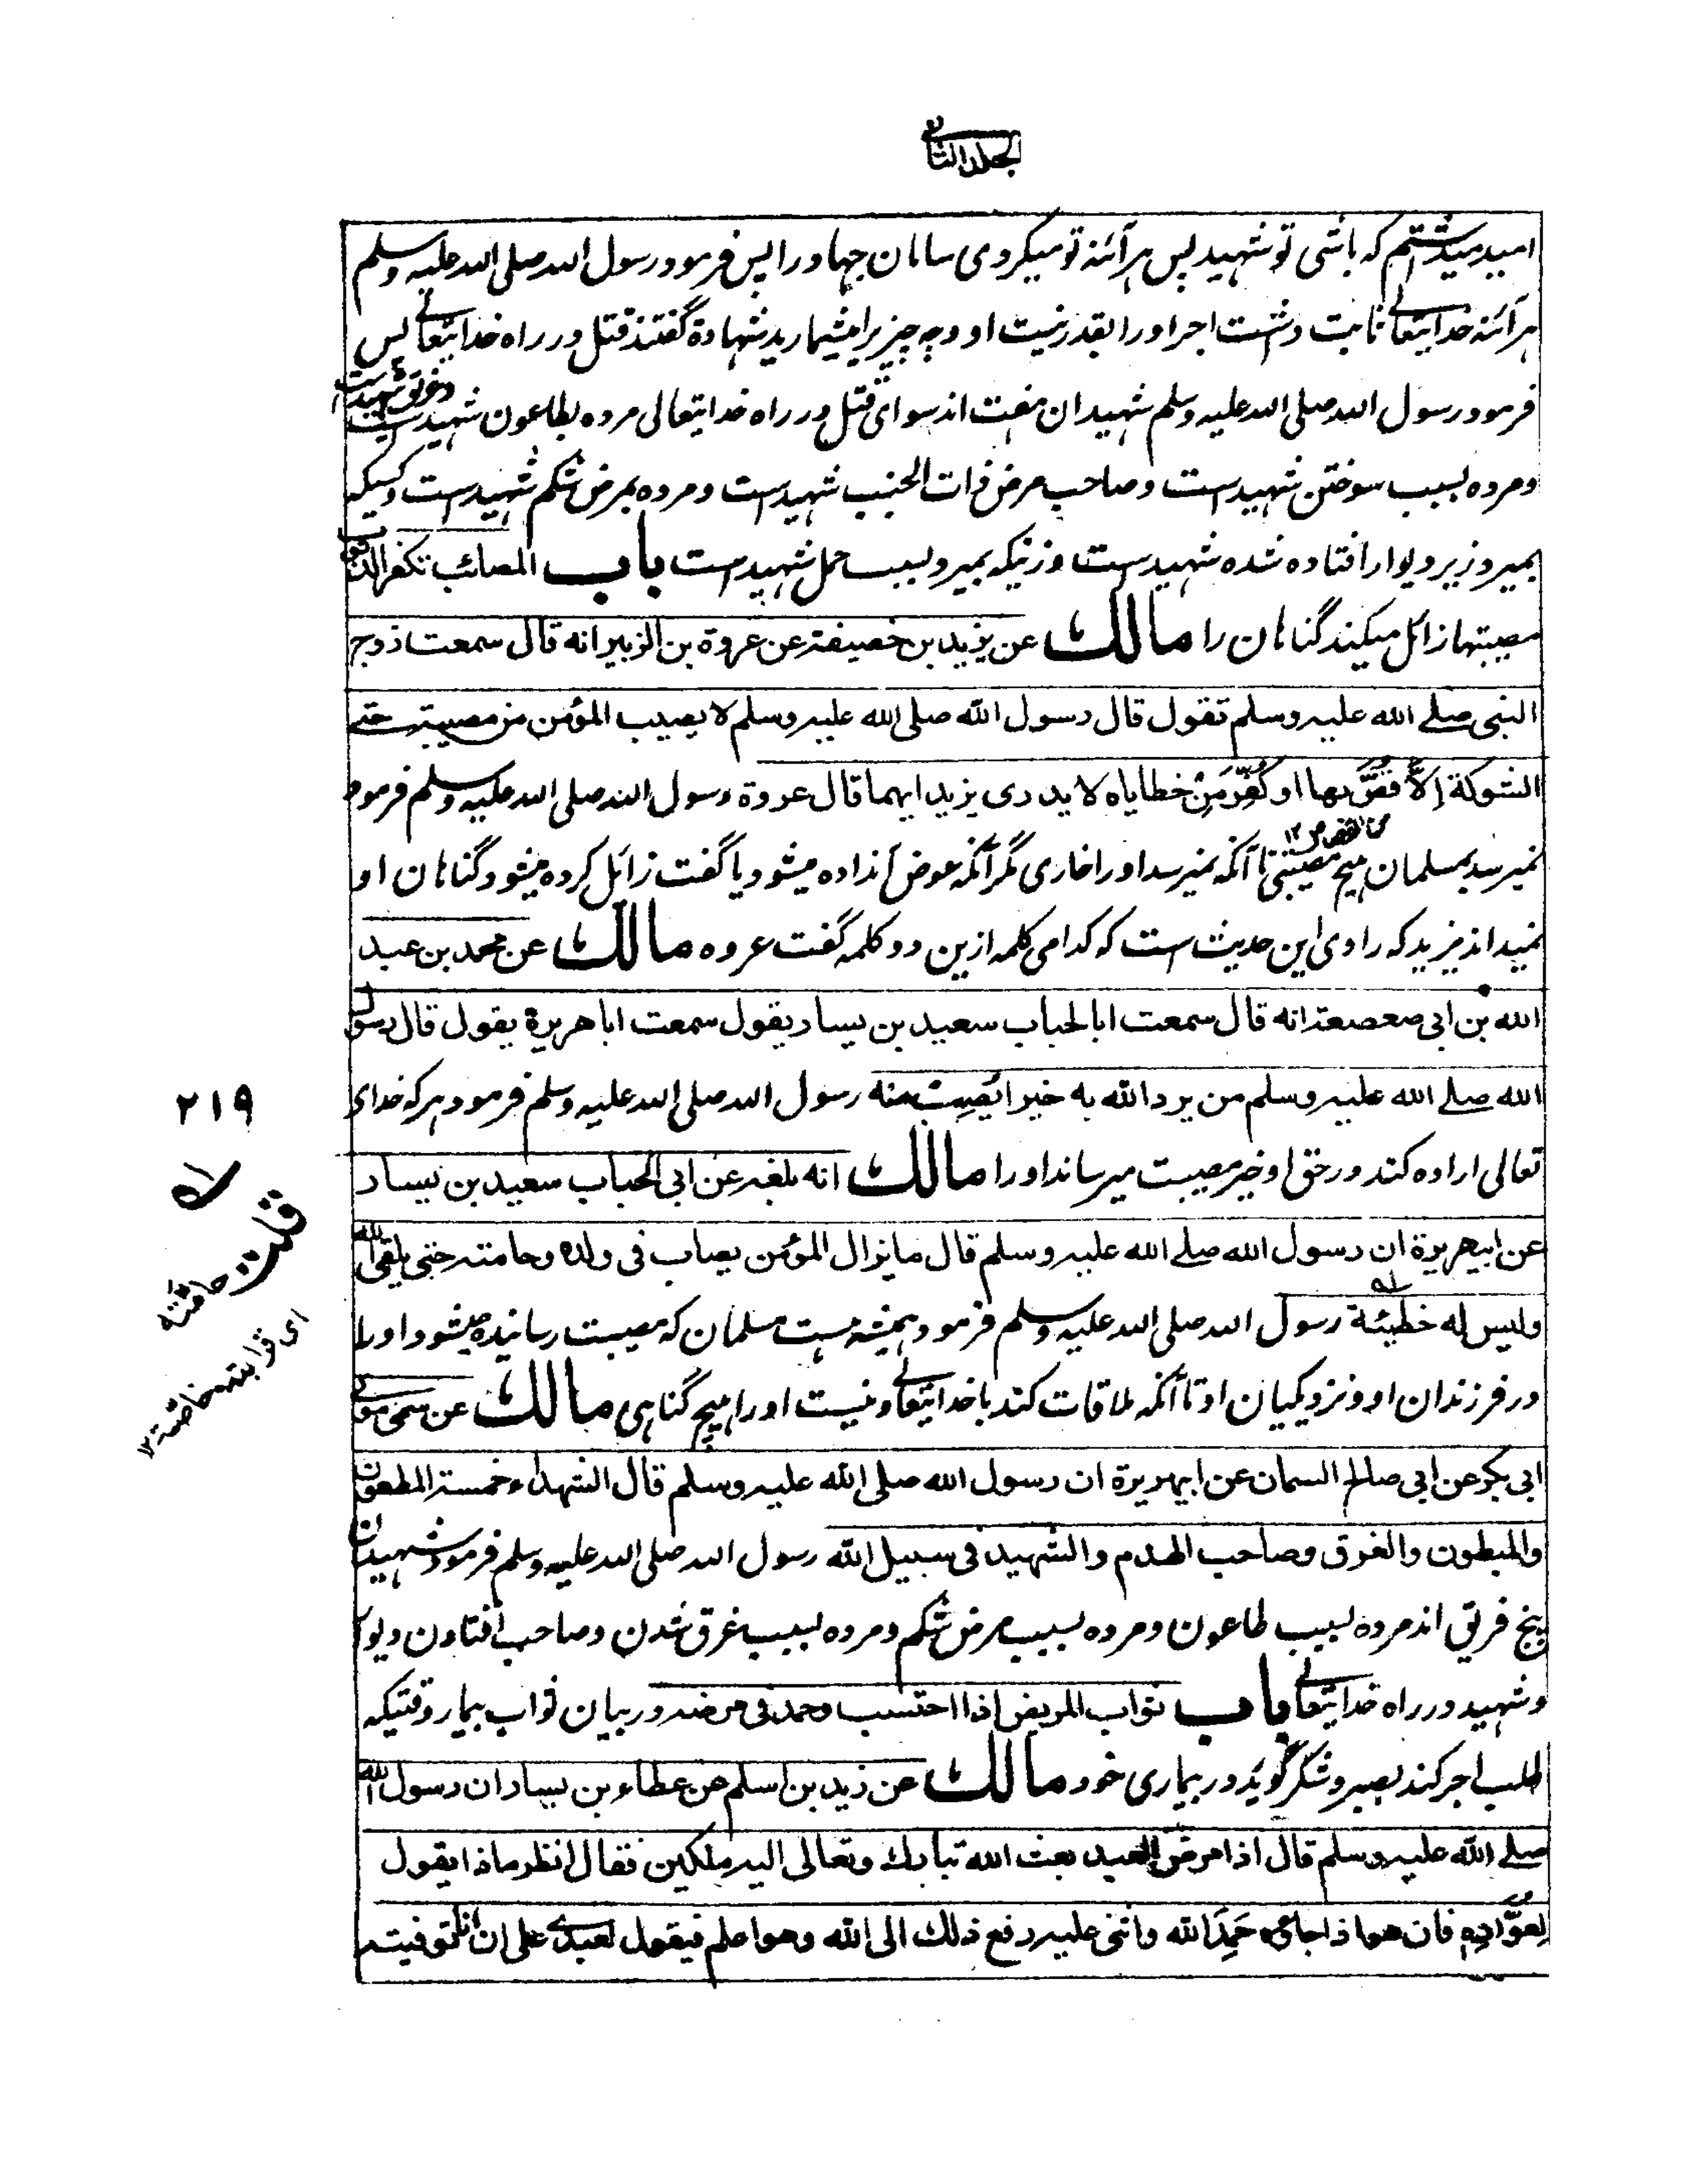 الجلد الثانی
امید میداشتم که باشی تو شهید پس هر آئنه تو میکردی سامان جهاد را پس فرمود رسول الله صلی الله علیه وسلم
هر آئنه خدایتعالے ثابت داشت اجر او را بقدر نیت او و چه چیز را میشمارید شهادة گفتند قتل در راه خدایتعالے پس
فرمود رسول الله صلی الله علیه وسلم شهیدان هفت اند سوای قتل در راه خدایتعالی مرده بطاعون شهید ست وغریق شهید ست
و مرده بسبب سوختن شهید ست و صاحب مرض ذات الجنب شهید ست و مرده بمرض شکم شهید ست و کسیکه
بمیرد زیر دیوار افتاده شده شهید ست و زنیکه بمیرد بسبب حمل شهید ست باب المصائب تکفر الذنوب
مصیبتها زائل میکند گناهان را مالك عن یزید بن خصیفة عن عروة بن الزبیر انه قال سمعت زوج
النبی صلے الله علیه وسلم تقول قال رسول الله صلی الله علیه وسلم لا یصیب المؤمن من مصیبة حتے
الشوکة إلاّ قُصَّ بها او کُفِّرَ مِنْ خطایاه لا یدری یزید ایهما قال عروة رسول الله صلی الله علیه وسلم فرمود
من القصاص ۱۲
نمیرسد بمسلمان هیچ مصیبتی تا آنکه نمیرسد او را خاری مگر آنکه عوض آنداده میشود یا گفت زائل کرده میشود گناهان او
نمیداند یزید که راوی این حدیث است که کدامی کلمه ازین دو کلمه گفت عروه مالك عن محمد بن عبد
الله بن ابی صعصعة انه قال سمعت ابا الحباب سعید بن یسار یقول سمعت ابا هریرة یقول قال رسول
الله صلے الله علیه وسلم من یرد الله به خیرا یُصِبْ منه رسول الله صلی الله علیه وسلم فرمود هر که خدای
تعالی اراده کند در حق او خیر مصیبت میرساند او را مالك انه بلغه عن ابی الحباب سعید بن یسار
عن ابیهریرة ان رسول الله صلے الله علیه وسلم قال ما یزال المؤمن یصاب فی ولده وحامته حتی یلقی الله
ولیس له خطیئة رسول الله صلی الله علیه وسلم فرمود همیشه هست مسلمان که مصیبت رسانیده میشود او را
در فرزندان او و نزدیکیان او تا آنکه ملاقات کند با خدایتعالے و نیست او را هیچ گناهی مالك عن سمی مولی
ابی بکر عن ابی صالح السمان عن ابیهریرة ان رسول الله صلی الله علیه وسلم قال الشهداء خمسة المطعون
والمبطون والغرق وصاحب الهدم والشهید فی سبیل الله رسول الله صلی الله علیه وسلم فرمود شهیدان
پنج فریق اند مرده بسبب طاعون و مرده بسبب مرض شکم و مرده بسبب غرق شدن و صاحب افتادن دیوار
و شهید در راه خدایتعالے باب ثواب المریض اذا احتسب وحمد فی مرضه در بیان ثواب بیمار وقتیکه
طلب اجر کند بصبر و شکر گوید در بیماری خود مالك عن زید بن اسلم عن عطاء بن یسار ان رسول الله
صلے الله علیه وسلم قال اذا مرض العبد بعث الله تبارك وتعالی الیه ملکین فقال انظر ماذا یقول
لِعُوَّادِهِ فان هو اذا جاؤه حَمِدَ الله واثنی علیه رفع ذلك الی الله وهو اعلم فیقول لعبدی علی ان انا توفیته
۲۱۹
قلت حامته
ای قرابته خاصة ۱۲